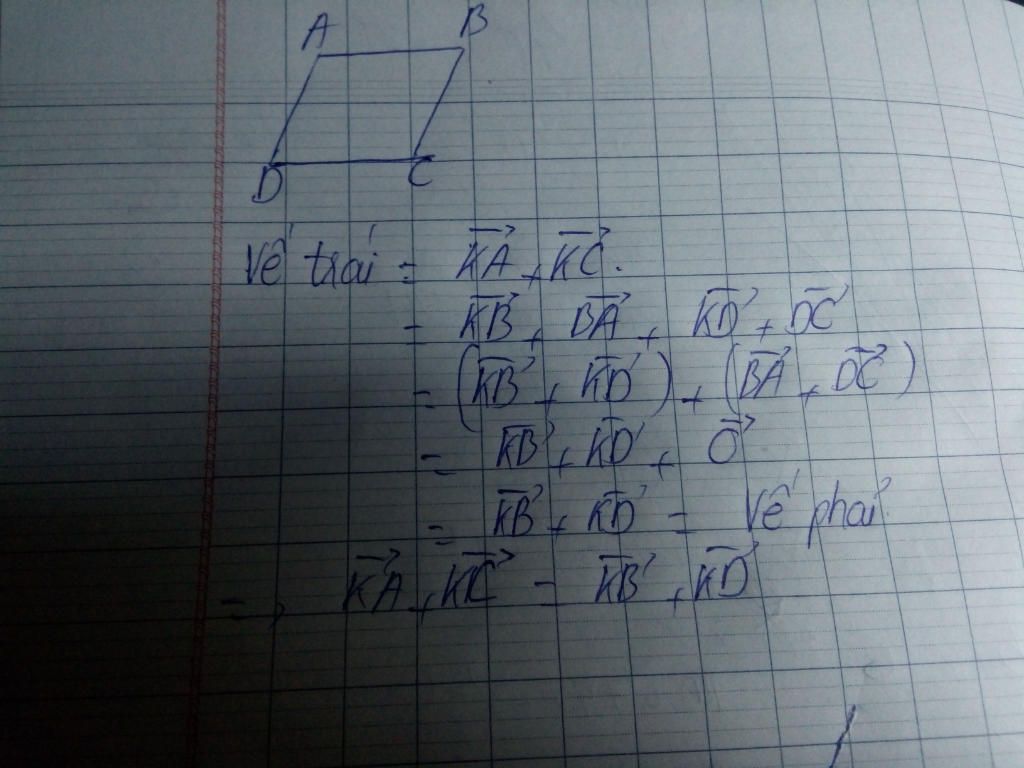 A B
D C
Vế trái = $\overrightarrow{KA} + \overrightarrow{KC}$.
= $\overrightarrow{KB} + \overrightarrow{BA} + \overrightarrow{KD} + \overrightarrow{DC}$
= $(\overrightarrow{KB} + \overrightarrow{KD}) + (\overrightarrow{BA} + \overrightarrow{DC})$
= $\overrightarrow{KB} + \overrightarrow{KD} + \overrightarrow{O}$
= $\overrightarrow{KB} + \overrightarrow{KD}$ = Vế phải.
=> $\overrightarrow{KA} + \overrightarrow{KC} = \overrightarrow{KB} + \overrightarrow{KD}$